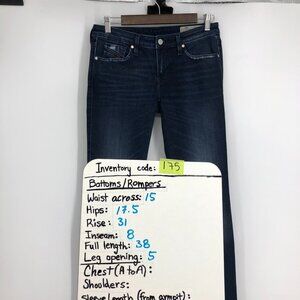 Inventory code: 175
Bottoms/Rompers
Waist across: 15
Hips: 17.5
Rise: 31
Inseam: 8
Full length: 38
Leg opening: 5
Chest (A to A):
Shoulders:
Sleeve length (from armpit):